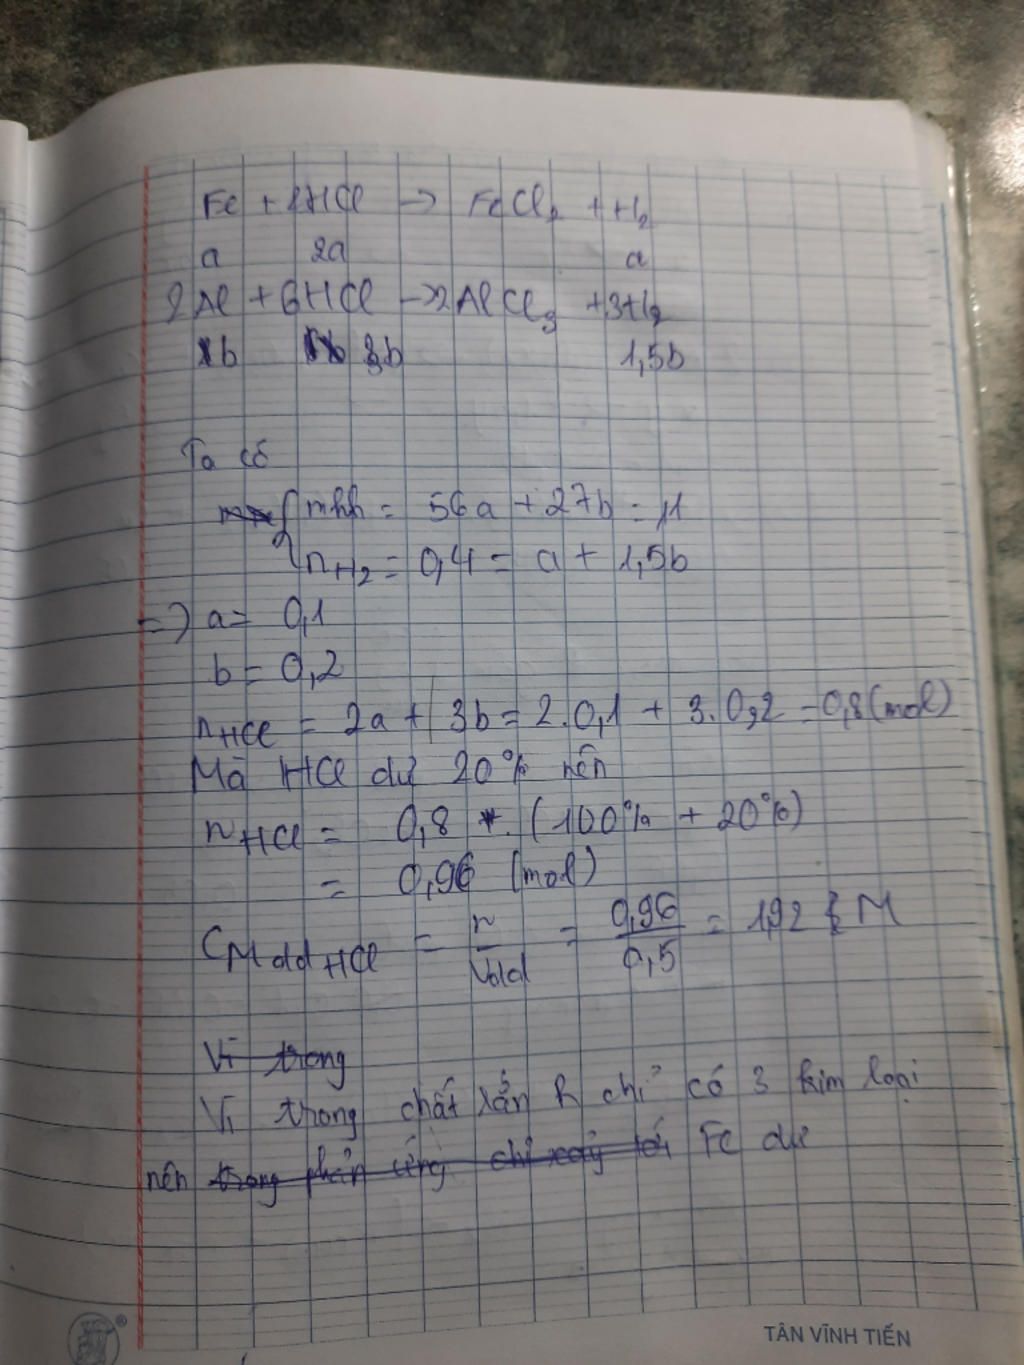 Fe + 2HCl -> FeCl2 + H2
a 2a a
2Al + 6HCl -> 2AlCl3 + 3H2
b 3b 1,5b
Ta có
mhh = 56a + 27b = 11
nH2 = 0,4 = a + 1,5b
=> a = 0,1
b = 0,2
nHCl = 2a + 3b = 2.0,1 + 3.0,2 = 0,8 (mol)
Mà HCl dư 20% nên
nHCl = 0,8 . (100% + 20%)
= 0,96 (mol)
CM dd HCl = n/Vdd = 0,96/0,5 = 1,92 M
Vì trong
Vì trong chất rắn R chỉ có 3 kim loại
nên trong phản ứng chỉ xảy tới Fe dư
TÂN VĨNH TIẾN